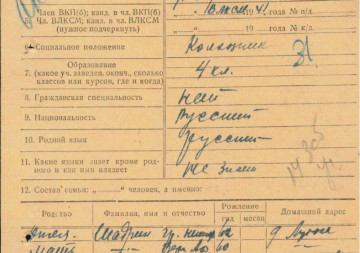 Член ВКП(б); канд. в чл. ВКП(б) 19 года № п/д.
5. Чл. ВЛКСМ; канд. в чл. ВЛКСМ ВЛКСМ 41 19 года № к/д.
(нужное подчеркнуть)
6. Социальное положение Колхозник
31
Образование
7. (какое уч. заведен. окончил, сколько классов или курсов, где и когда) 4 кл.
8. Гражданская специальность нет
9. Национальность Русский
10. Родной язык русский
11. Какие языки знает кроме родного и как ими владеет не знает
12. Состав семьи: „ “ человек, а именно:
Родство Фамилия, имя и отчество Рождение год месяц Домашний адрес
Шадрин
мать